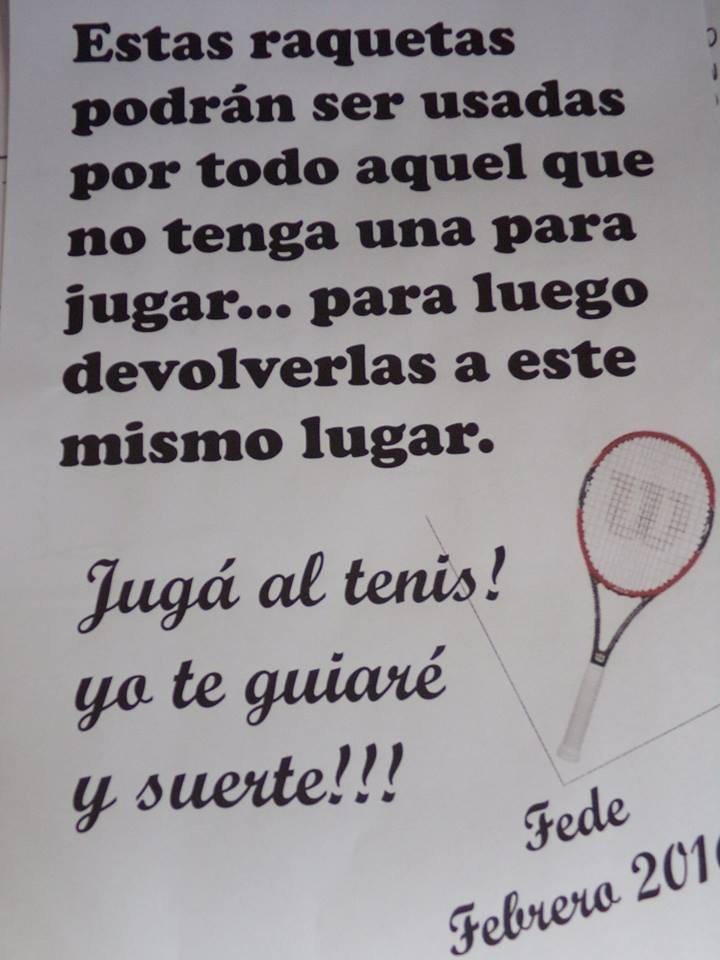 Estas raquetas
podrán ser usadas
por todo aquel que
no tenga una para
jugar... para luego
devolverlas a este
mismo lugar.
Jugá al tenis!
yo te guiaré
y suerte!!!
W
Fede
Febrero